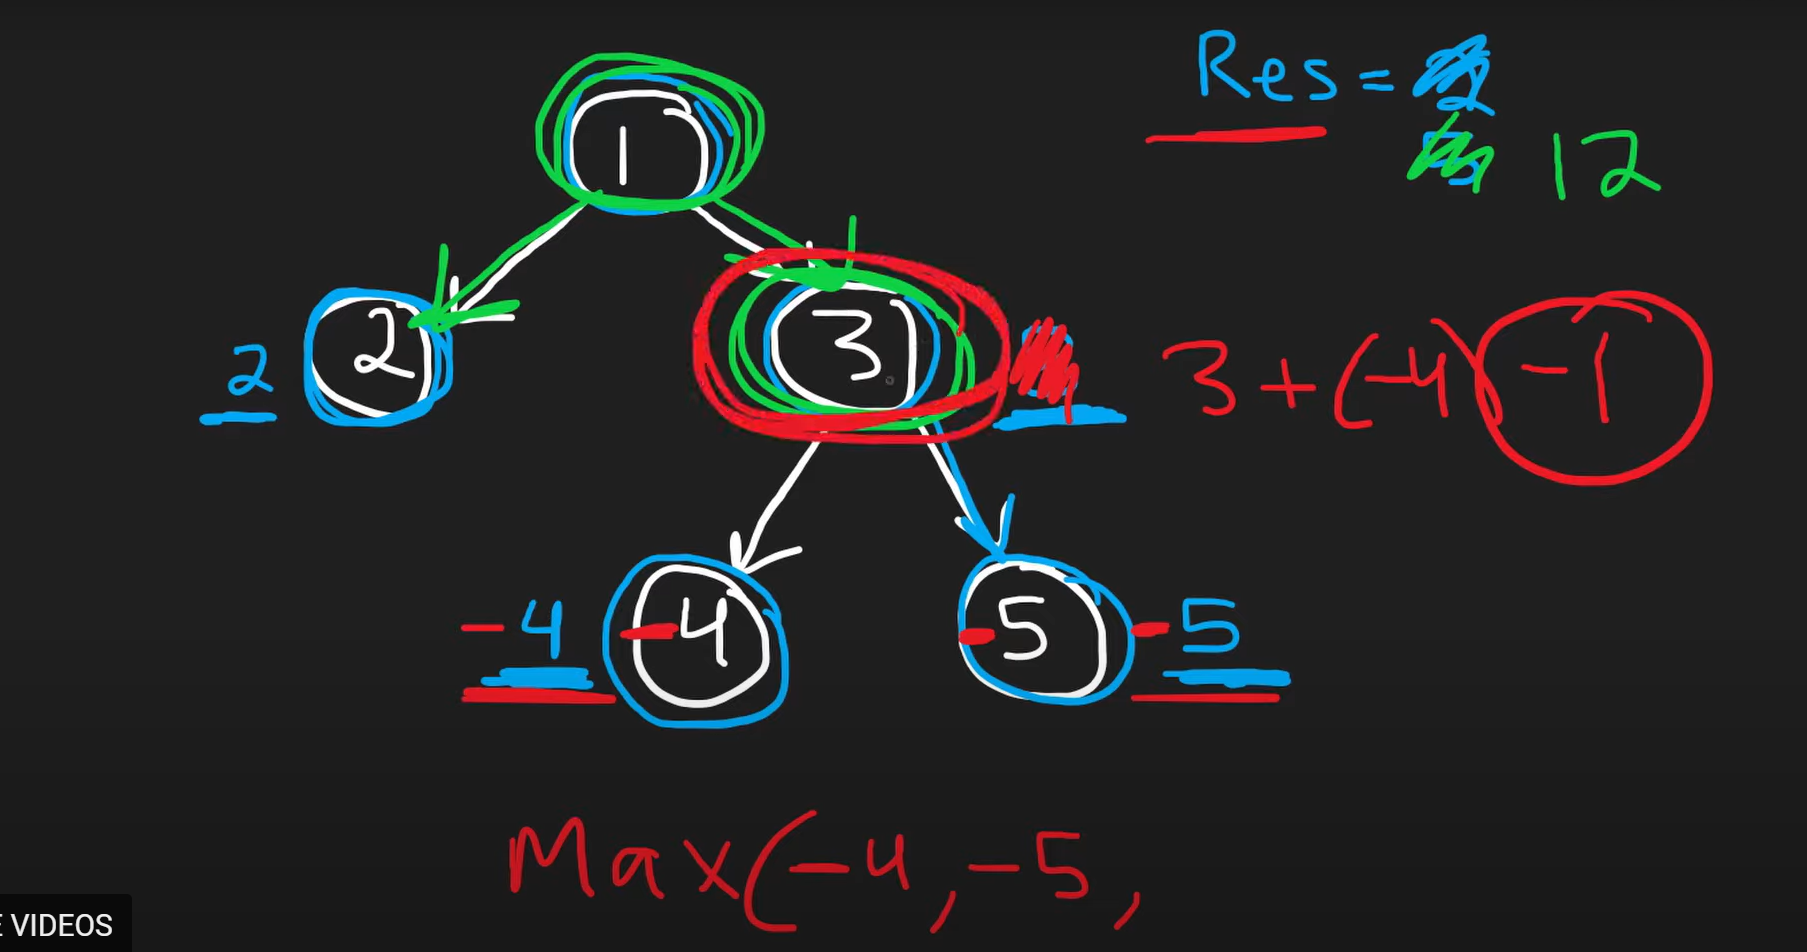 Res =
12
1
2 2
3 3 + (-4) -1
-4 -4 -5 -5
Max(-4, -5,
E VIDEOS